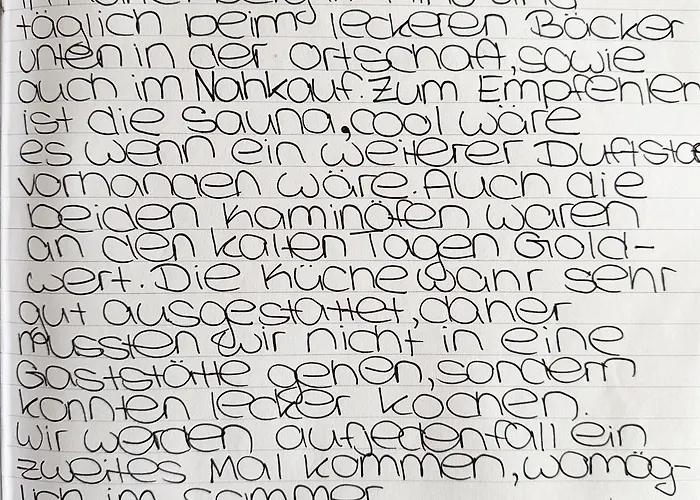 täglich beim leckeren Bäcker
unten in der Ortschaft, sowie
auch im Nahkauf. Zum Empfehlen
ist die Sauna, cool wäre
es wenn ein weiterer
vorhanden wäre. Auch die
beiden Kaminöfen waren
an den kalten Tagen Gold-
wert. Die Küche wahr sehr
gut ausgestattet, daher
mussten wir nicht in eine
Gaststätte gehen, sondern
konnten lecker kochen.
Wir werden aufjedenfall ein
zweites Mal kommen, womög-
lich im Sommer